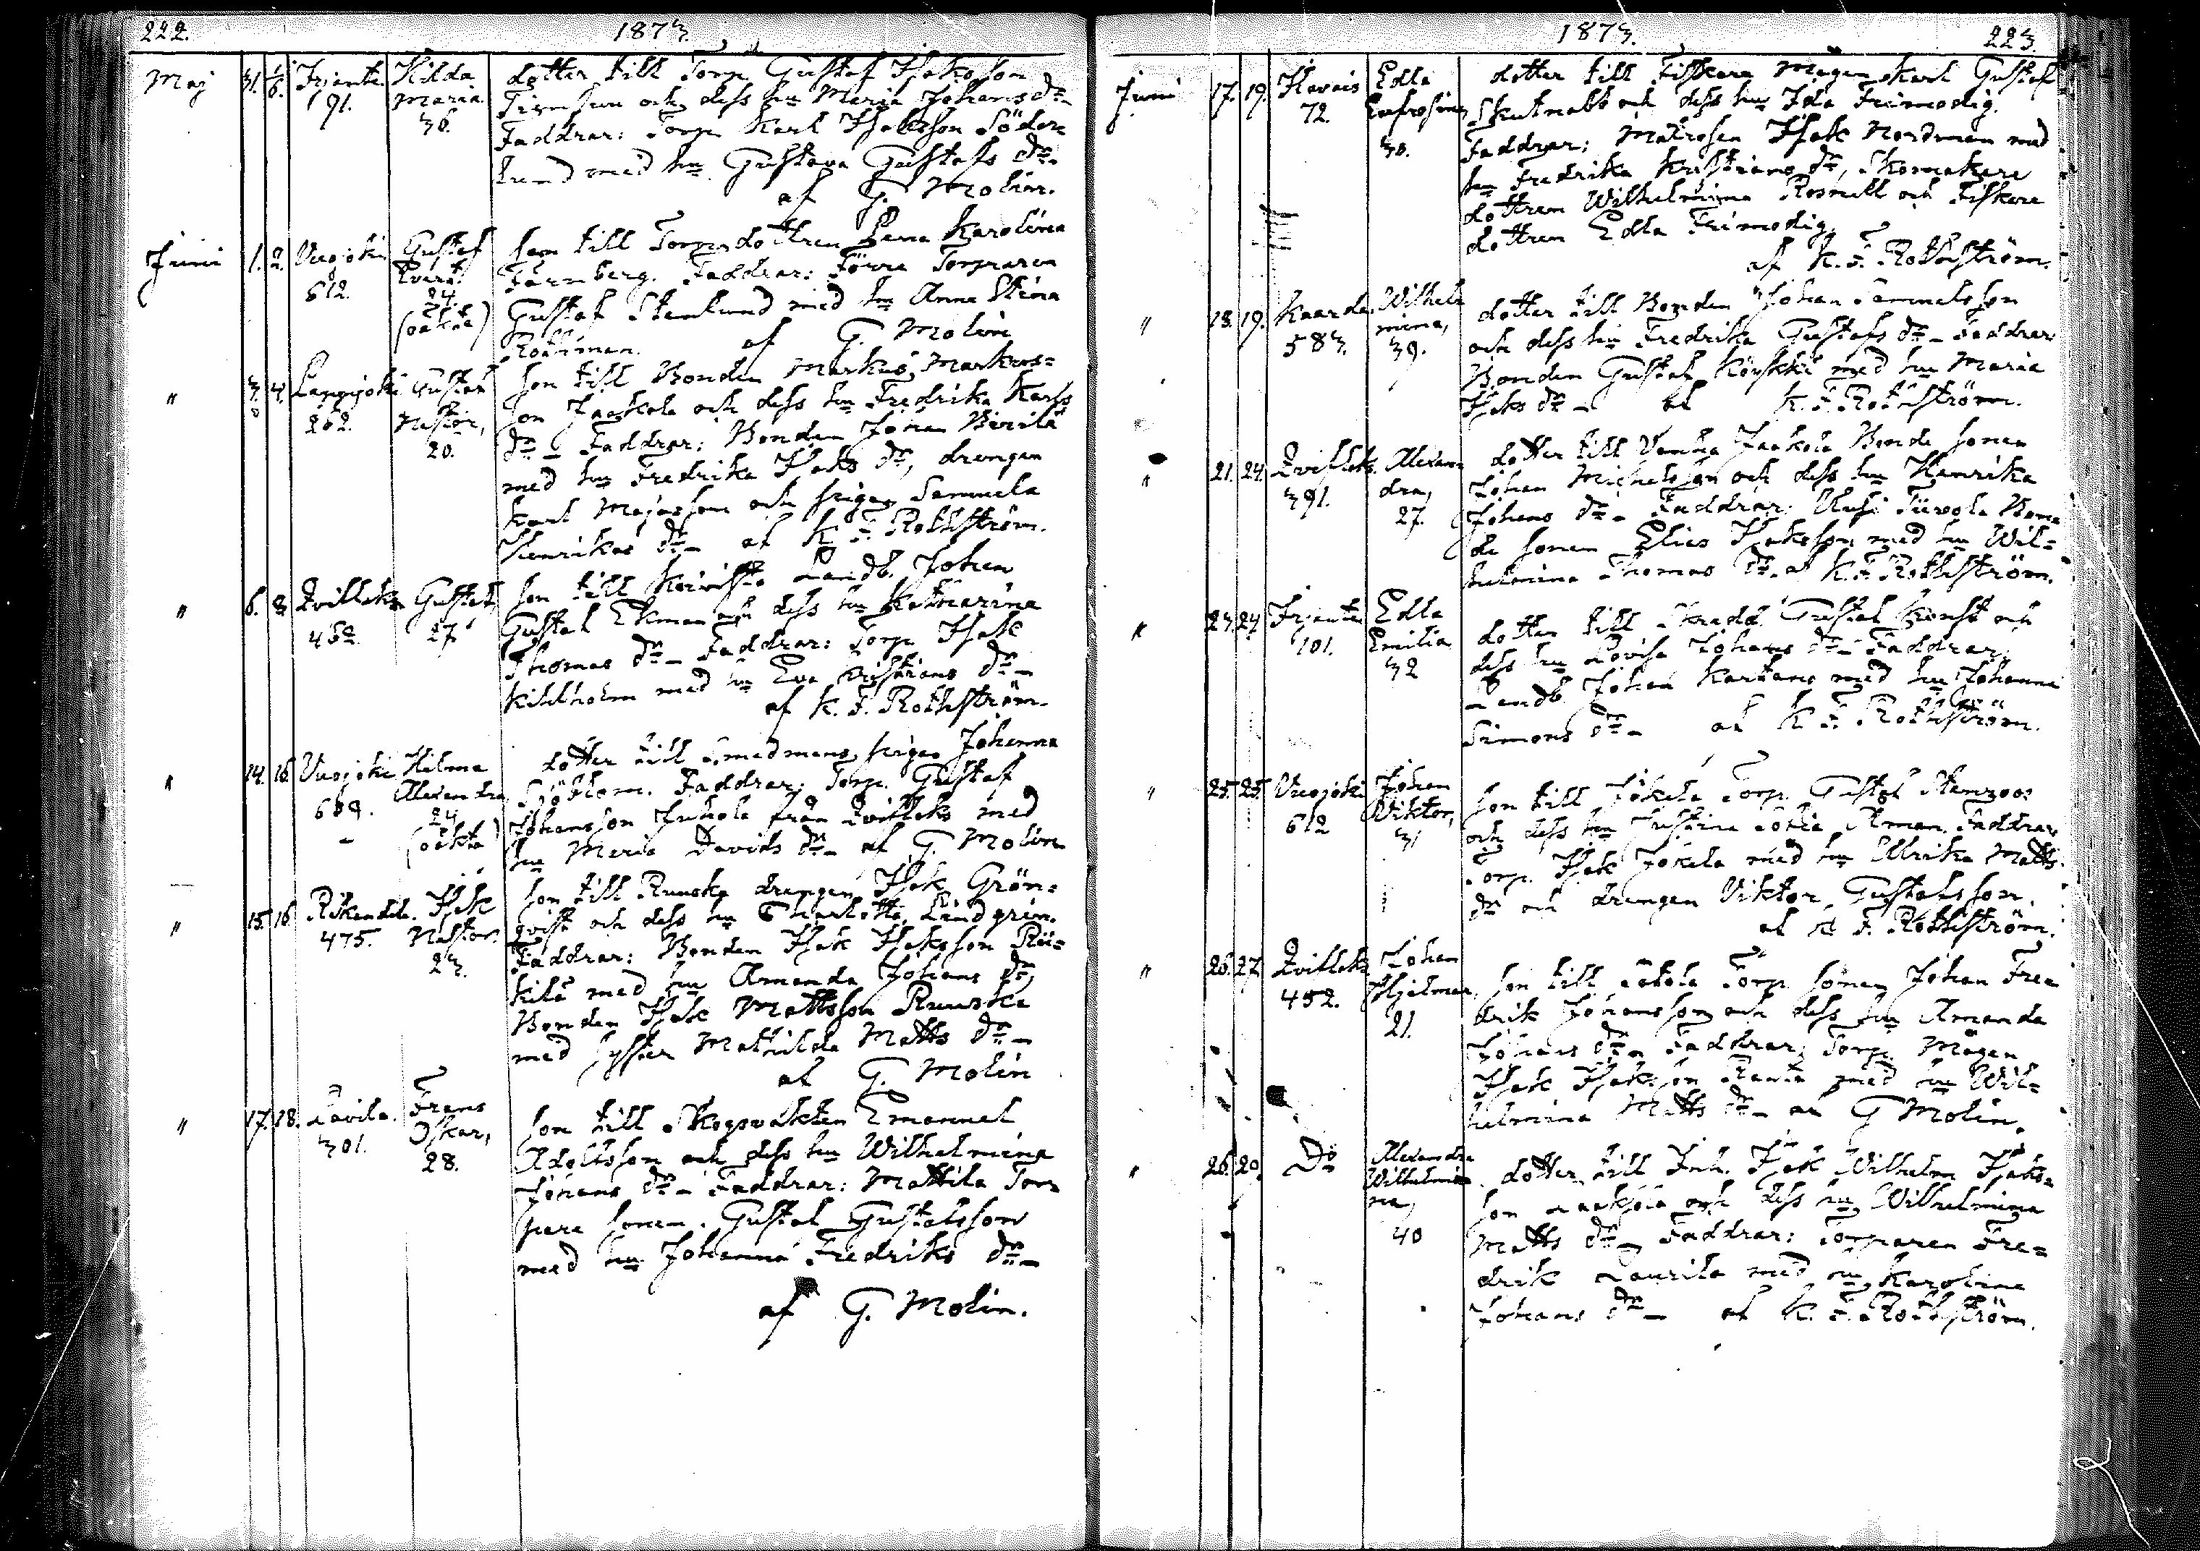 222. 1873.
Maj 31. 1/6. Irjanta 191. Hilda Maria 36.
dotter till Torp. Gustaf Isaksson
och dess hu Maria Johans dr
Faddrar: Torp Karl Isaksson Söder=
lund med hu Gustava Gustafs dr
af G. Molin.
Juni 1. 2. Vuojoki 612. Gustaf Evert. 24. (oäkta)
son till Torp. dottren Lena Karolina
Färmberg. Faddrar: Förre Torparen
Gustaf Stenlund med hu Anna Stina
Rothman. af G. Molin
" 3. 4. Lappijoki 262. Gustaf Nestor, 20.
son till Bonden Markus Markus=
son Jaakola och dess hu Fredrika Karls
dr – Faddrar: Bonden Johan
med hu Fredrika Isaks dr, drengen
Karl Majasson och pigan Sammela
Henrikas dr – af K. F. Rothström.
" 6. 8. Qvitleks 452. Gustaf, 27
son till Landb. Johan
Gustaf Ekman och dess hu Katharina
Thomas dr – Faddrar: Torp. Isak
Kihlholm med hu Eva Kristians dr –
af K. F. Rothström.
" 14. 15. Vuojoki 689. Hilma Alexandra 24 (oäkta)
dotter till Smedmans pigan Johanna
Sjöblom. Faddrar: Torp. Gustaf
Johansson Juhola från Qvitleks med
hu Maria Davids dr – af G. Molin
" 15. 16. Rikantila. 475. Isak Nestor. 23.
son till Ruuska drengen Isak Grön=
qvist och dess hu Charlotta Lindgrén.
Faddrar: Bonden Isak Isaksson Rii=
kilä med hu Amanda Johans dr,
Bonden Isak Mattsson Ruuska
med syster Mathilda Matts dr –
af G. Molin
" 17. 18. Lavila. 301. Frans Oskar, 28.
son till Skogsvakten Emanuel
Adolfsson och dess hu Wilhelmina
Johans dr – Faddrar: Mattila Tor=
pare sonen. Gustaf Gustafsson
med hu Johanna Fredriks dr –
af G. Molin.
1873. 223.
Juni 17. 19. Havais 72. Edla Eufrosina 30.
dotter till Fiskare Mågen Karl Gustaf
Skutnabb och dess hu Ida Frimodig.
Faddrar: Matrosen Isak Nordman med
hu Fredrika Kristians dr, Skomakare
dottren Wilhelmina Rosnell och Fiskare
dottren Edla Frimodig.
af K. F. Rothström.
" 18. 19. Kaaro 583. Wilhelmina, 39.
dotter till Bonden Johan Sammelsson
och dess hu Fredrika Gustafs dr – Faddrar
Bonden Gustaf med hu Maria
Isaks dr – af K. F. Rothström.
" 21. 24. Qvitleks 391. Alexandra, 27.
dotter till Vanha Jaakola Bonde sonen
Johan Michelsson och dess hu Henrika
Johans dr – Faddrar: Uusi Bon=
de sonen Elias Isaksson med hu Wil=
helmina Thomas dr – af K. F. Rothström.
" 23. 24 Irjanta 101. Edla Emilia 32
dotter till Skradd. Gustaf och
dess hu Lovisa Johans dr – Faddrar:
Landb. Johan Kartano med hu Johanna
Simons dr – af K. F. Rothström.
" 25. 25. Vuojoki 612 Johan Viktor, 31
son till Jokela Torp. Gustaf Stenroos
och dess hu Justina Sofia Öman. Faddrar
Torp. Isak Jokela med hu Ulrika Matts
dr och drengen Viktor Gustafsson.
af K. F. Rothström.
" 26. 27. Qvitleks 452. Johan Hjalmar, 21.
son till Torp. sonen Johan Fre=
drik Johansson och dess hu Amanda
Johans dr – Faddrar: Torp. Mågen
Isak Isaksson Ranta med hu Wil=
helmina Matts dr – af G Molin.
" 26. Do Alexandra Wilhelmina, 40
dotter till Inh. Isak Wilhelm Isaks=
son och dess hu Wilhelmina
Matts dr – Faddrar: Torparen Fre=
drik Laurila med hu Karolina
Johans dr – af K. F. Rothström.